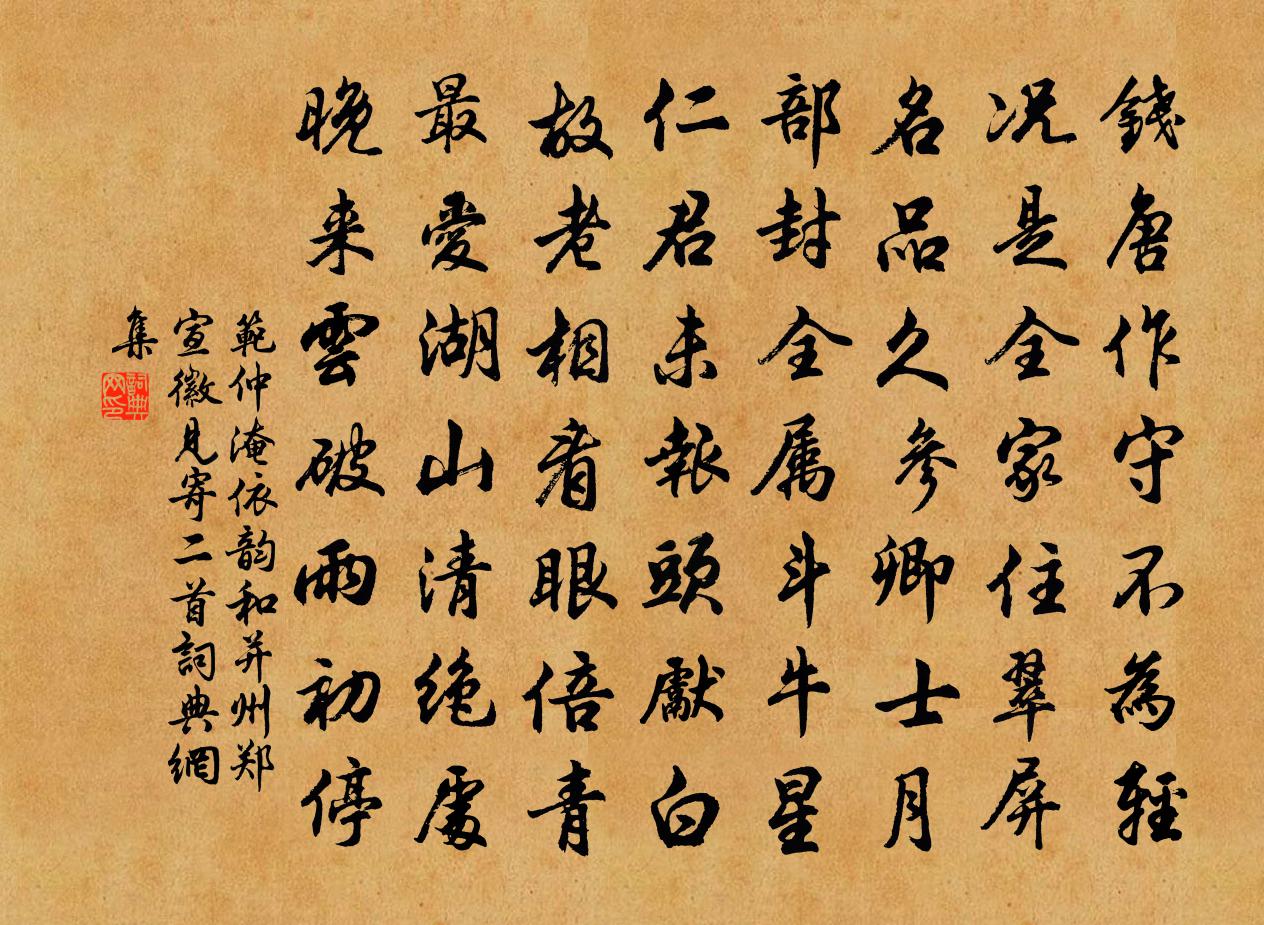 錢唐作守不為輕
况是全家住翠屏
名品久參卿士月
部封全属斗牛星
仁君未報頭獻白
故老相看眼倍青
最愛湖山清绝處
晚来雲破雨初停
範仲淹依韵和并州郑
宣徽見寄二首詞典網
集
詞典
网印